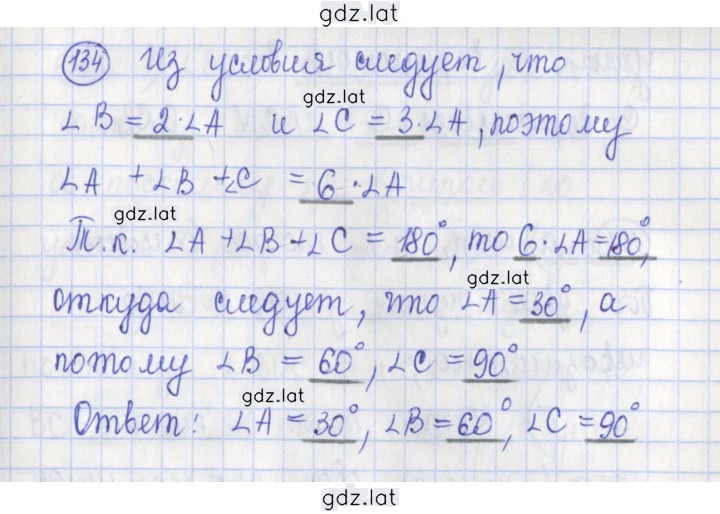 gdz.lat
134 Из условия следует, что
gdz.lat
∠B = 2·∠A и ∠C = 3·∠A, поэтому
∠A + ∠B + ∠C = 6·∠A
gdz.lat
Т.к. ∠A + ∠B + ∠C = 180°, то 6·∠A = 180°,
gdz.lat
откуда следует, что ∠A = 30°, а
потому ∠B = 60°, ∠C = 90°
gdz.lat
Ответ: ∠A = 30°, ∠B = 60°, ∠C = 90°
gdz.lat